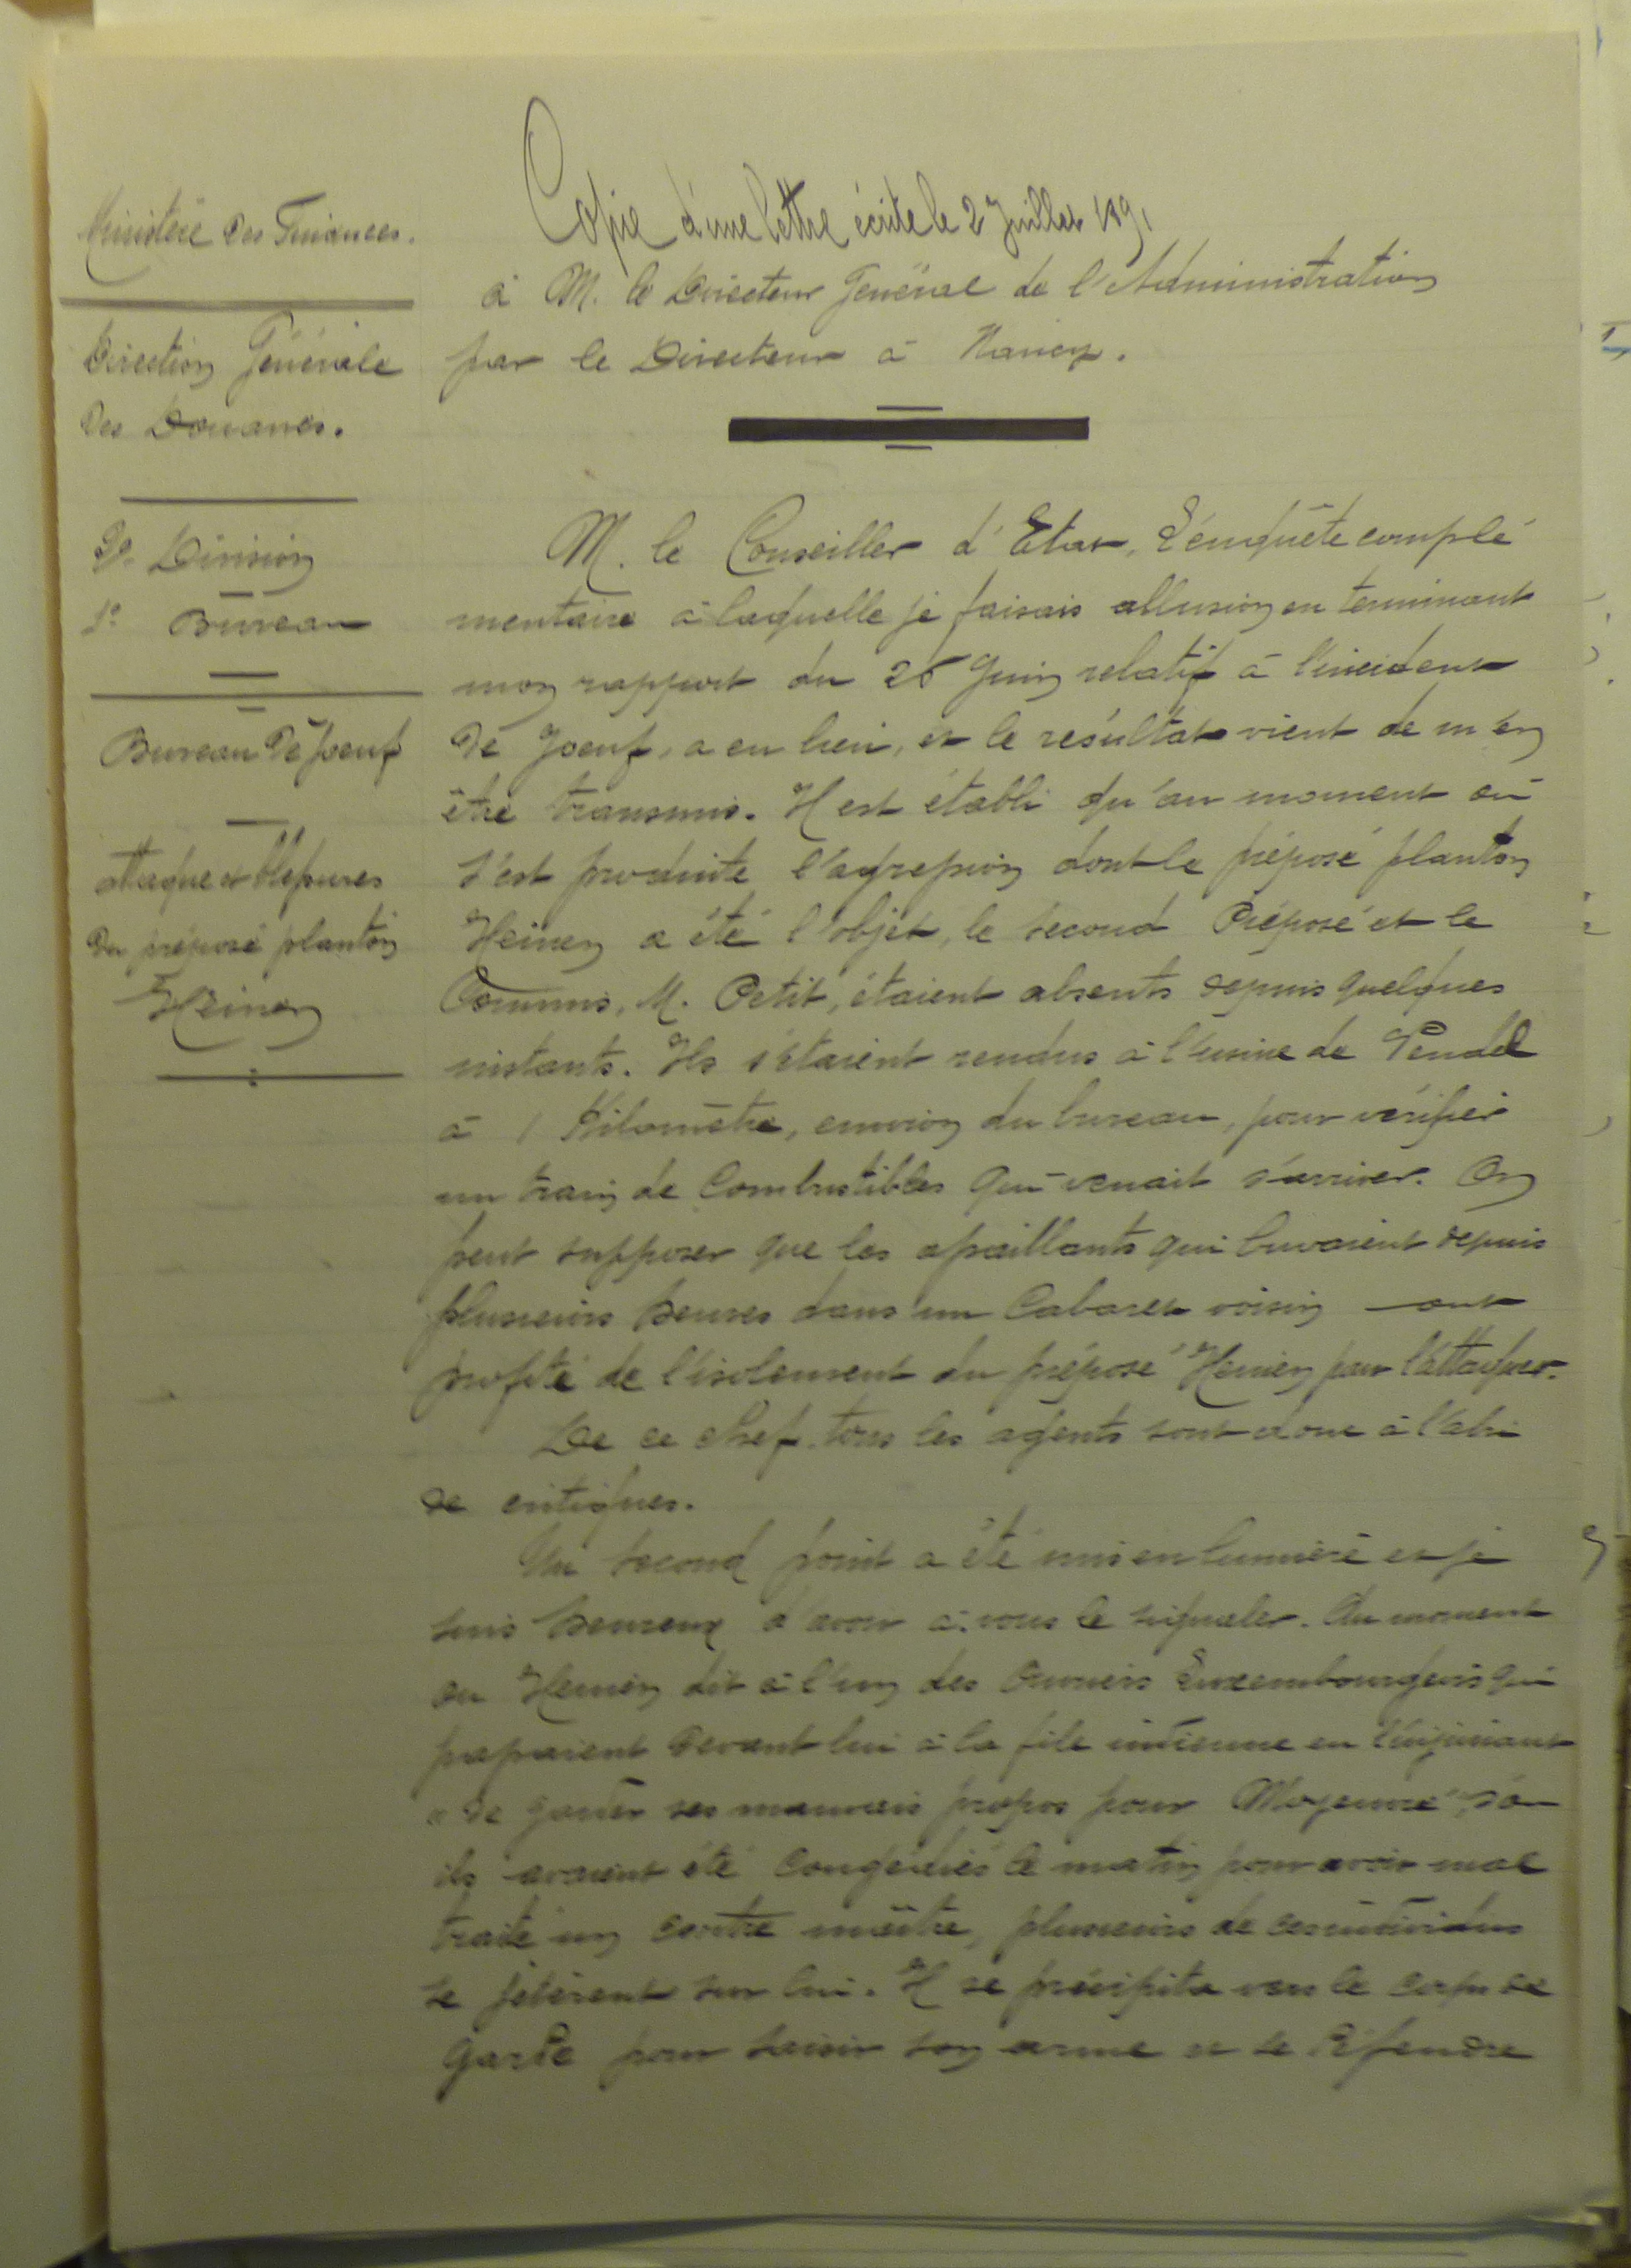 Ministère des Finances.
Direction Générale
des Douanes.
Division
1er Bureau
Bureau de Joeuf
Attaque et blessures
du préposé planton
Heinen
Copie d'une lettre écrite le 2 Juillet 1891
à M. le Directeur Général de l'Administration
par le Directeur à Nancy.
M. le Conseiller d'Etat, L'enquête complé
mentaire à laquelle je faisais allusion en terminant
mon rapport du 26 Juin relatif à l'incident
de Joeuf, a eu lieu, et le résultat vient de m'en
être transmis. Il est établi qu'au moment où
s'est produite l'agression dont le préposé planton
Heinen a été l'objet, le second Préposé et le
Commis, M. Petit, étaient absents depuis quelques
instants. Ils s'étaient rendus à l'usine de Vendel
à 1 Kilomètre, environ du bureau, pour vérifier
un train de Combustibles qui venait d'arriver. On
peut supposer que les assaillants qui buvaient depuis
plusieurs heures dans un Cabaret voisin ont
profité de l'isolement du préposé Heinen pour l'attaquer.
De ce chef, tous les agents sont donc à l'abri
de critiques.
Un second point a été mis en lumière et je
suis heureux d'avoir à vous le signaler. Au moment
où Heinen dit à l'un des Ouvriers Luxembourgeois qui
passaient devant lui à la file indienne en l'injuriant
"de garder ses mauvais propos pour Moyeuvre", d'où
ils avaient été congédiés le matin pour avoir mal
traité un contre maître, plusieurs de ces individus
se jetèrent sur lui. Il se précipita vers le corps de
Garde pour saisir son arme et se défendre